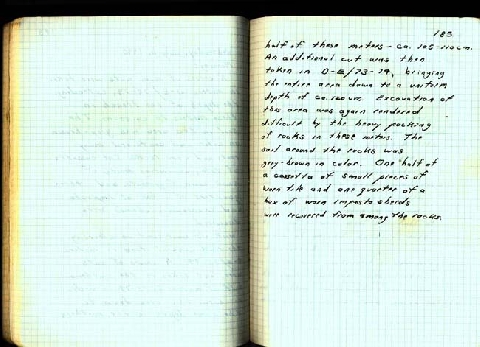 183
half of these meters - ca.
An additional cut was then
taken in O-E/23-24, bringing
the entire area down to a uniform
depth of ca. Excavation of
this area was again rendered
difficult by the heavy packing
of rocks in these meters. The
soil around the rocks was
grey-brown in color. One half of
a cassetta of small pieces of
worn tile and one quarter of a
box of worn impasto sherds
were recovered from among the rocks.